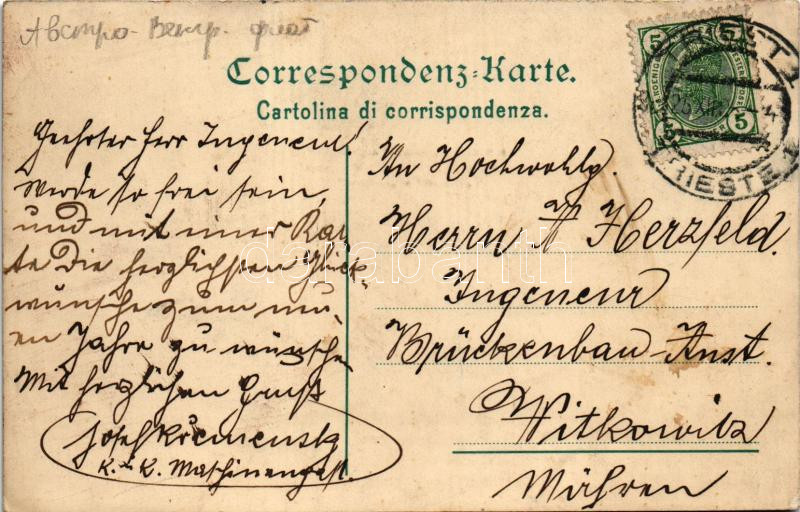 Австро-Венгр. флот
Correspondenz-Karte.
Cartolina di corrispondenza.
5 5
5 5
TRIEST 1
25 XII
4
TRIESTE 1
Geehrter Herr Ingeneur!
Werde so frei sein,
und mit einer Kar-
te Die herzlichsten Glück-
wünsche zum neu-
en Jahre zu wünschen
Mit herzlichen Gruß
Josef Kremensky
K. u. K. Maschinengast.
An Hochwohlg.
Herrn Herzfeld.
Ingeneur
Brückenbau-Anst.
Witkowitz
Mähren
darabanth